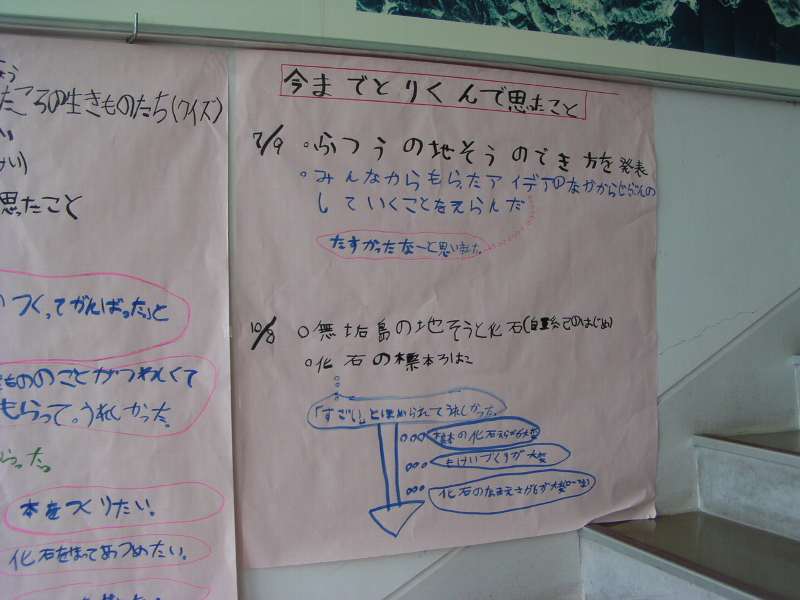 ころの生きものたち(クイズ)
思ったこと
つくってがんばった」と
もらって。うれしかった。
本をつくりたい。
化石をあつめたい。
今までとりくんで思ったこと
7/9 ○ふつうの地そうのでき方を発表
○みんなからもらったアイデアのなかから
していくことをえらんだ
たすかったなーと思いました。
10/8 ○無垢島の地そうと化石
○化石の標本ろはこ
「すごい」とほめられてうれしかった。
標本の化石えらびが大変
もけいづくりが大変
化石のなまえさがしが大変